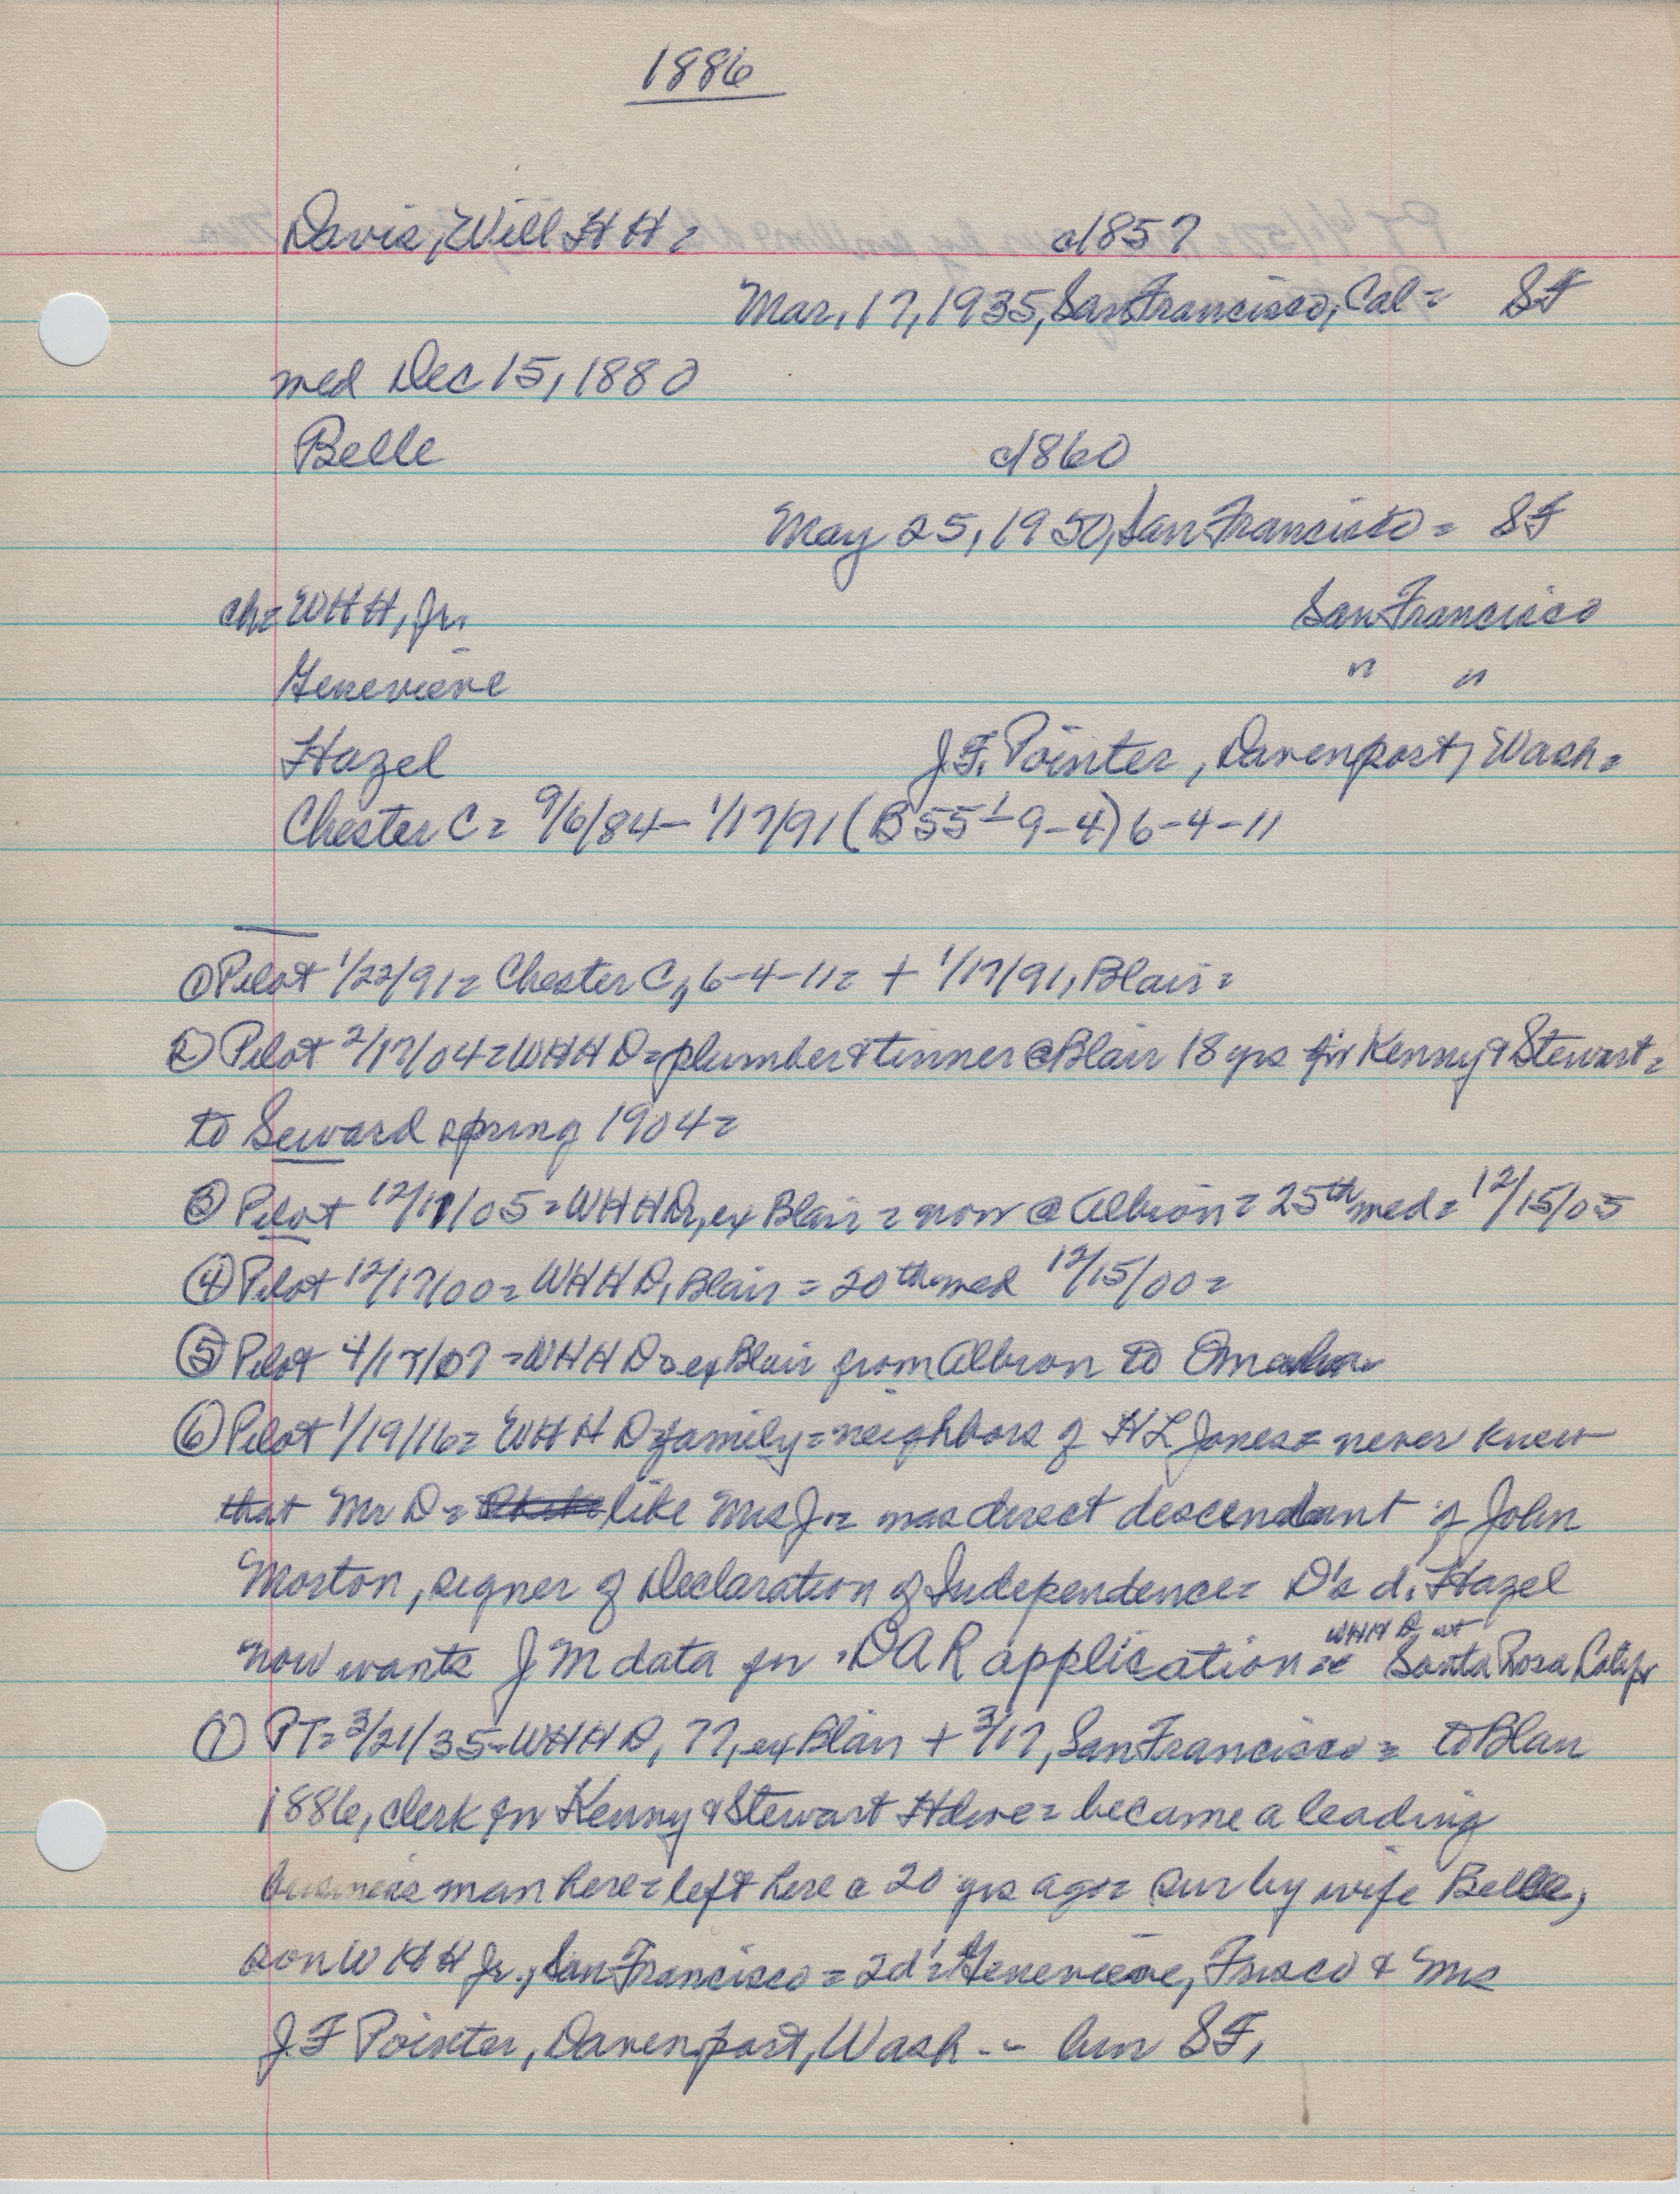 1886
Davis, Will H H = c1857
Mar. 17, 1935, San Francisco, Cal = SF
med Dec 15, 1880
Belle c1860
May 25, 1950, San Francisco = SF
ch= WHH, Jr. San Francisco
Genevieve " "
Hazel J. F. Pointer, Davenport, Wash =
Chester C = 9/6/84 - 1/17/91 (B 55 1-9-4) 6-4-11
① Pilot 1/22/91 = Chester C, 6-4-11 = + 1/17/91, Blair =
② Pilot 2/17/04 = WHH D = plumber & tinner @ Blair 18 yrs for Kenny & Stewart =
to Seward spring 1904 =
③ Pilot 12/17/05 = WHH D, ex Blair = now @ Albion = 25th med = 12/15/05
④ Pilot 12/17/00 = WHH D, Blair = 20th med 12/15/00 =
⑤ Pilot 4/17/07 = WHH D = ex Blair from Albion to Omaha
⑥ Pilot 1/19/16 = WHH D = family = neighbors of HL Jones = never knew
that Mr D = like Mrs J = was direct descendant of John
Morton, signer of Declaration of Independence = D's d. Hazel
now wants J M data for DAR application = WHH D at Santa Rosa Calif
⑦ PT = 3/21/35 = WHH D, 77, ex Blair + 3/17, San Francisco = to Blair
1886, clerk for Kenny & Stewart Hdwe = became a leading
business man here = left here c 20 yrs ago = sur by wife Belle,
son WHH Jr., San Francisco = 2d = Genevieve, Frisco & Mrs
J. F Pointer, Davenport, Wash -- bur SF,